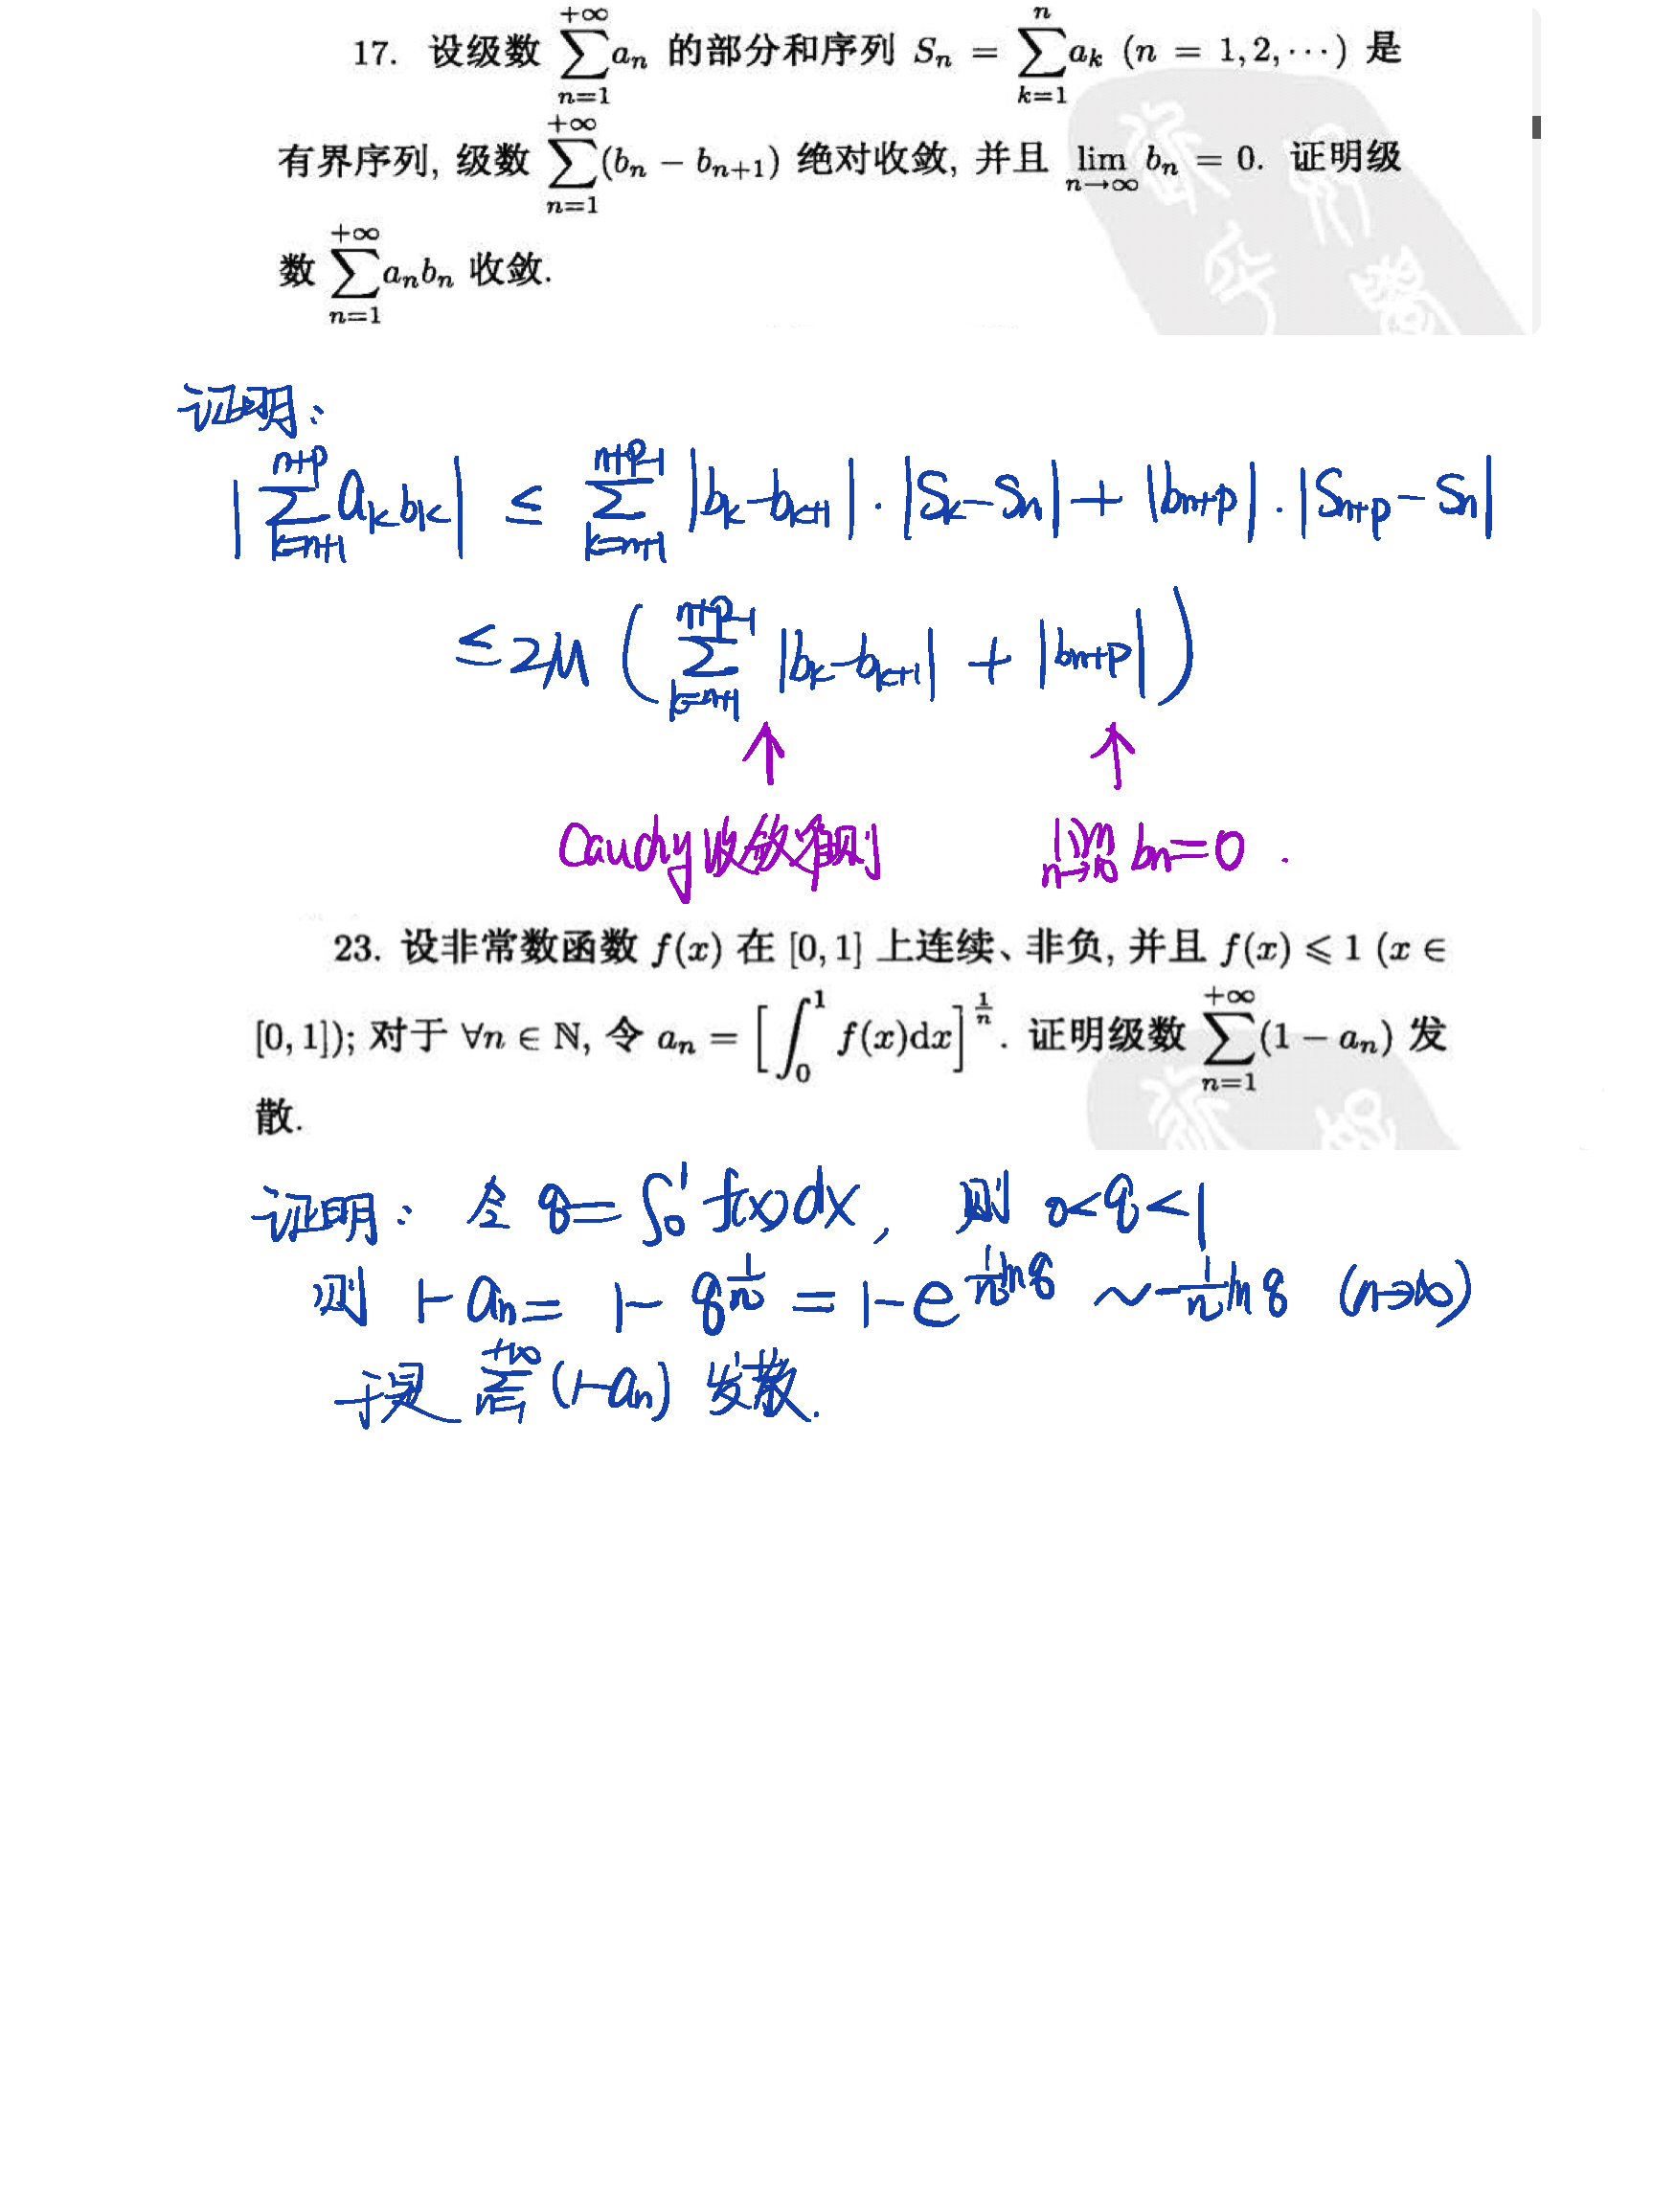 17. 设级数 $\sum_{n=1}^{+\infty} a_n$ 的部分和序列 $S_n = \sum_{k=1}^{n} a_k$ $(n = 1, 2, \cdots)$ 是
有界序列, 级数 $\sum_{n=1}^{+\infty} (b_n - b_{n+1})$ 绝对收敛, 并且 $\lim_{n\to\infty} b_n = 0$. 证明级
数 $\sum_{n=1}^{+\infty} a_n b_n$ 收敛.
证明:
$\left| \sum_{k=n+1}^{n+p} a_k b_k \right| \le \sum_{k=n+1}^{n+p-1} |b_k - b_{k+1}| \cdot |S_k - S_n| + |b_{n+p}| \cdot |S_{n+p} - S_n|$
$\le 2M \left( \sum_{k=n+1}^{n+p-1} |b_k - b_{k+1}| + |b_{n+p}| \right)$
↑ ↑
Cauchy收敛准则 $\lim_{n\to\infty} b_n = 0$.
23. 设非常数函数 $f(x)$ 在 $[0,1]$ 上连续、非负, 并且 $f(x) \leqslant 1$ $(x \in$
$[0,1])$; 对于 $\forall n \in \mathbb{N}$, 令 $a_n = \left[ \int_0^1 f(x)\mathrm{d}x \right]^{\frac{1}{n}}$. 证明级数 $\sum_{n=1}^{+\infty} (1 - a_n)$ 发
散.
证明: 令 $q = \int_0^1 f(x)dx$, 则 $0 < q < 1$
则 $1 - a_n = 1 - q^{\frac{1}{n}} = 1 - e^{\frac{1}{n}\ln q} \sim -\frac{1}{n}\ln q$ $(n\to\infty)$
于是 $\sum_{n=1}^{+\infty} (1-a_n)$ 发散.